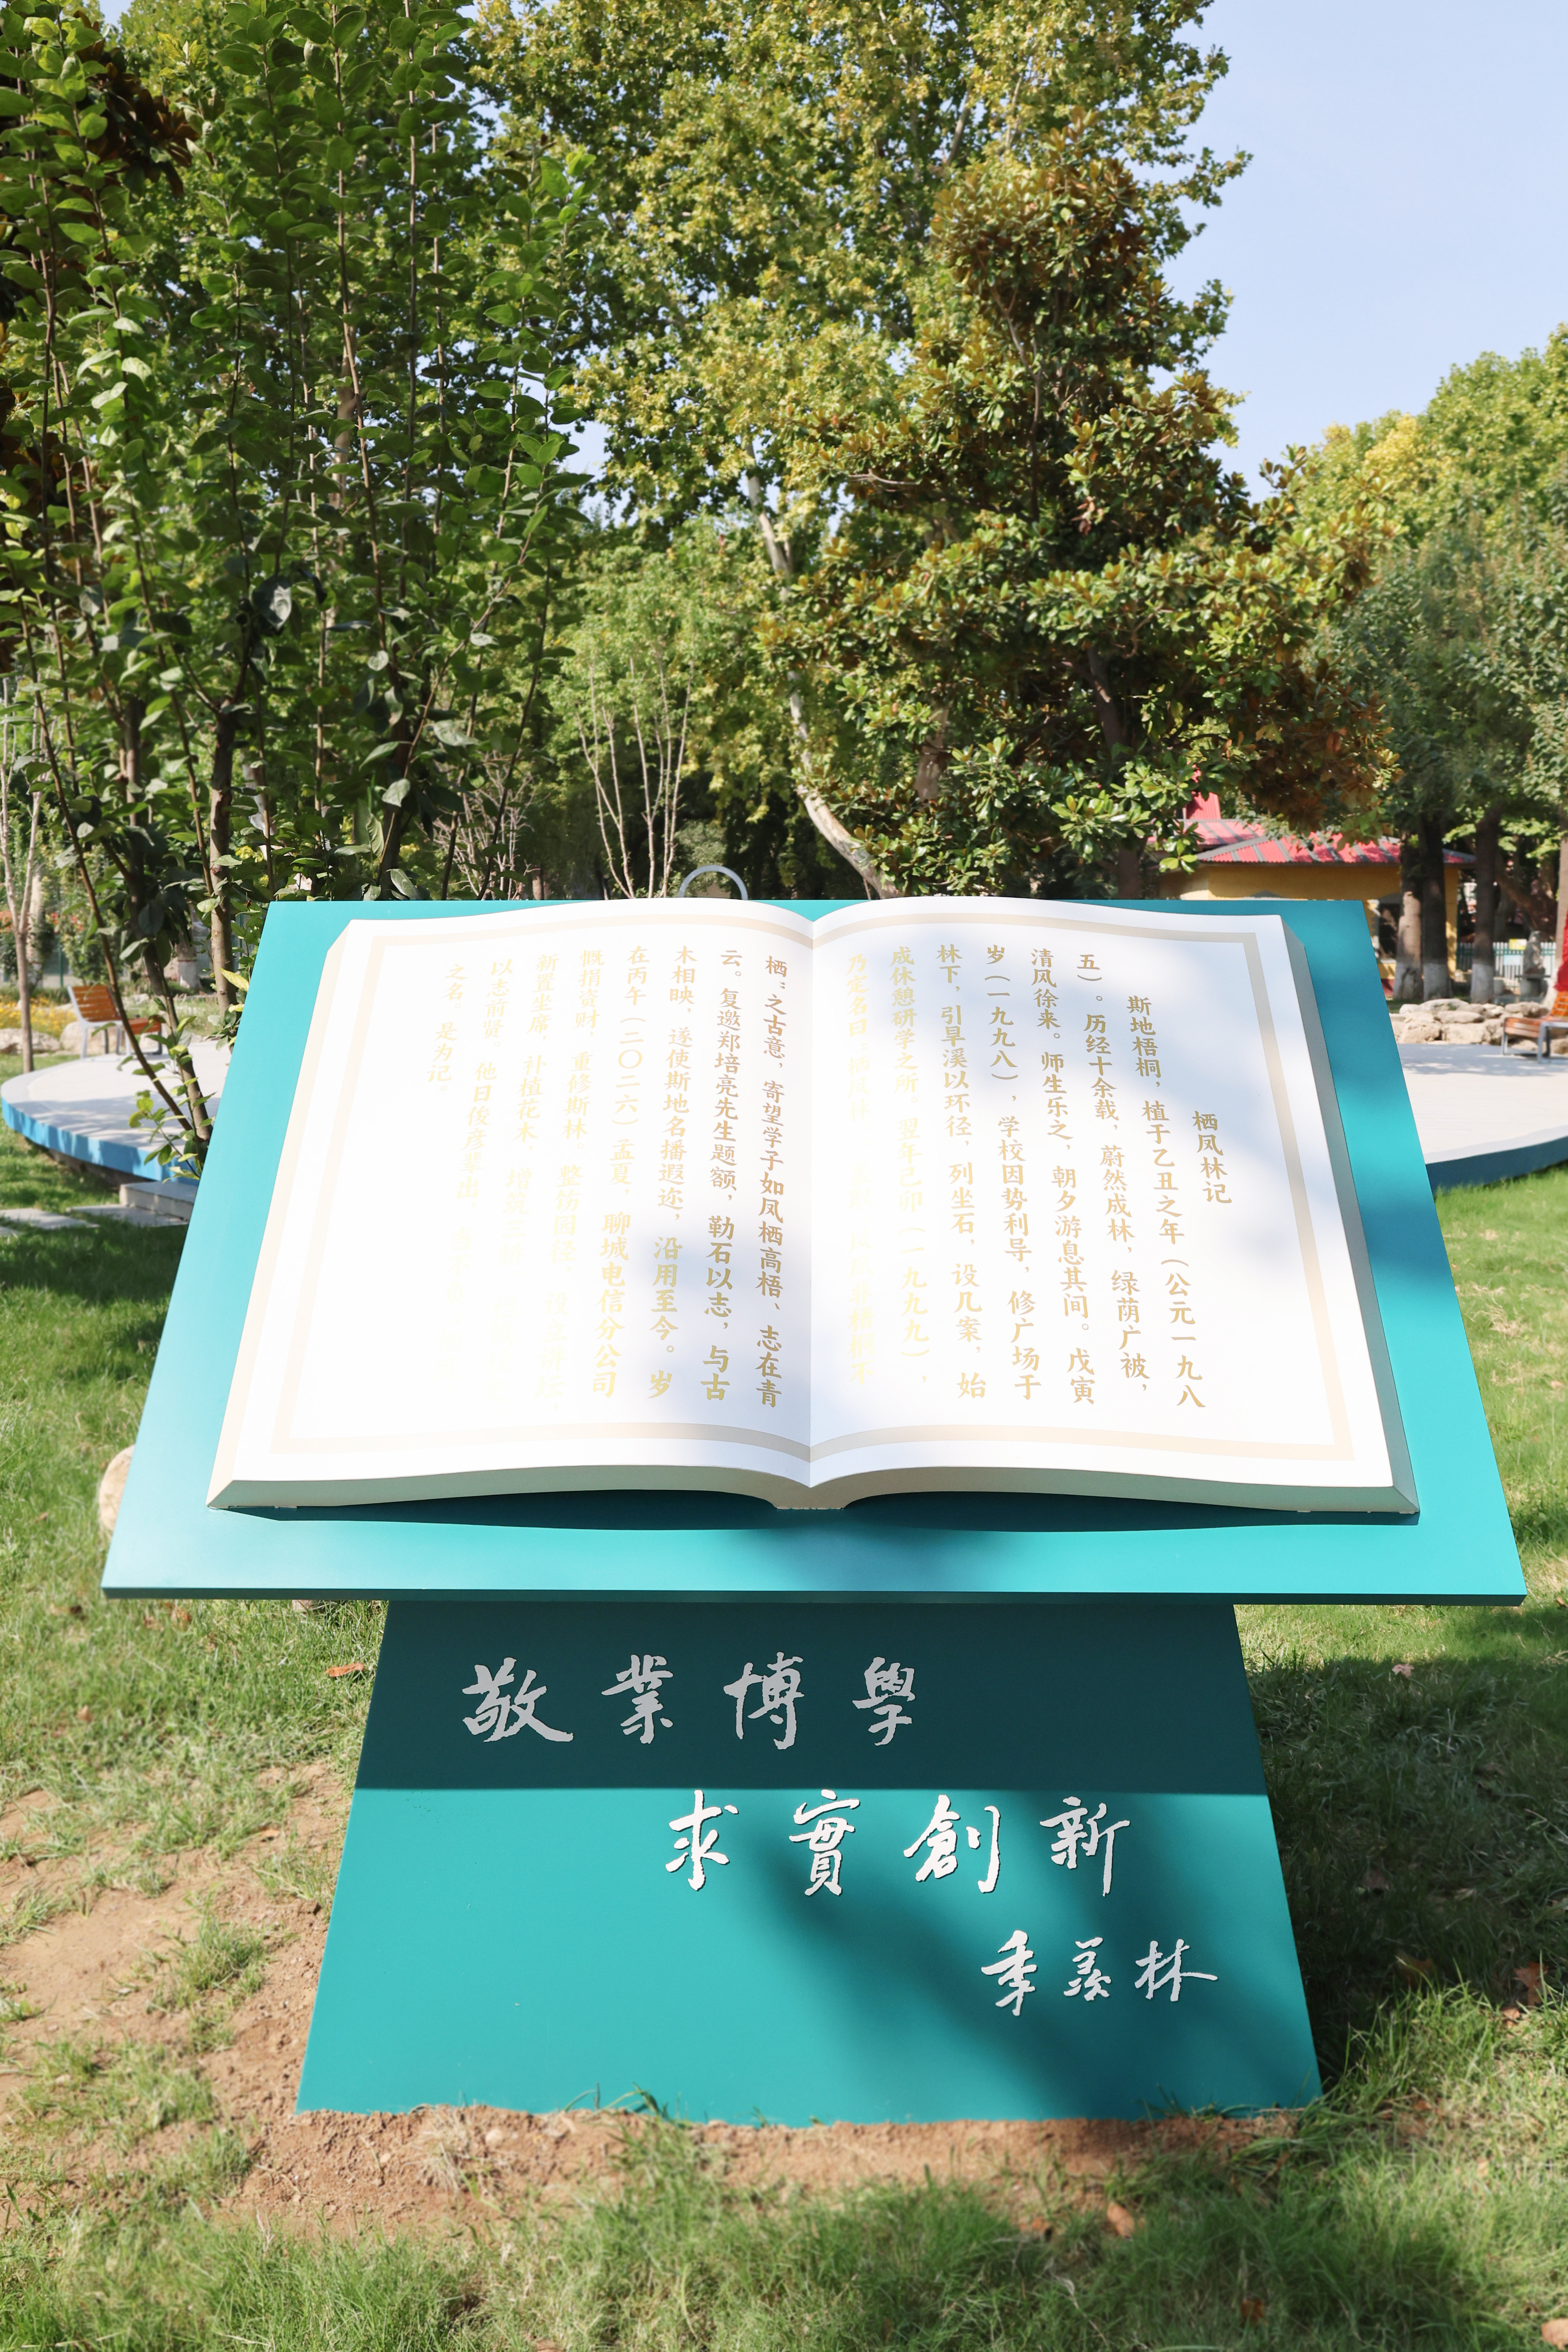 栖凤林记
斯地梧桐，植于乙丑之年（公元一九八
五）。历经十余载，蔚然成林，绿荫广被，
清风徐来。师生乐之，朝夕游息其间。戊寅
岁（一九九八），学校因势利导，修广场于
林下，引旱溪以环径，列坐石，设几案，始
成休憩研学之所。翌年己卯（一九九九），
乃定名曰栖凤林
栖；之古意，寄望学子如凤栖高梧、志在青
云。复邀郑培亮先生题额，勒石以志，与古
木相映，遂使斯地名播遐迩，沿用至今。岁
在丙午（二〇二六）孟夏，聊城电信分公司
慨捐资财，重修斯林。整饬园径，
新置坐席，补植花木，
以志前贤。他日俊彦辈出，
之名，是为记。
敬業博學
求實創新
季羡林